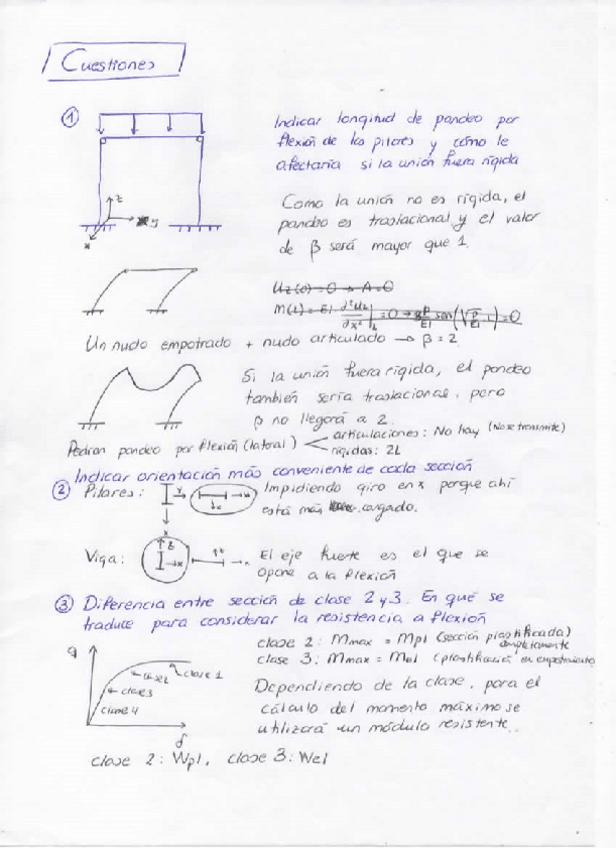 Cuestiones
① Indicar longitud de pandeo por
flexión de los pilares y cómo le
afectaría si la unión fuera rígida
z
y
x
Como la unión no es rígida, el
pandeo es traslacional y el valor
de β será mayor que 1.
Uz(0)=0 → A=0
Un nudo empotrado + nudo articulado → β = 2
Si la unión fuera rígida, el pandeo
también sería traslacional, pero
β no llegará a 2.
Pedirán pandeo por flexión (lateral)
articulaciones: No hay (No se transmite)
rígidas: 2L
Indicar orientación más conveniente de cada sección
② Pilares: Impidiendo giro en x porque ahí
está más cargado.
Viga: El eje fuerte es el que se
opone a la flexión
③ Diferencia entre sección de clase 2 y 3. En qué se
traduce para considerar la resistencia a flexión
clase 2: Mmax = Mpl (sección plastificada completamente)
clase 3: Mmax = Mel (plastificación en empotramiento)
q
clase 2
clase 1
clase 3
clase 4
δ
Dependiendo de la clase, para el
cálculo del momento máximo se
utilizará un módulo resistente.
clase 2: Wpl, clase 3: Wel